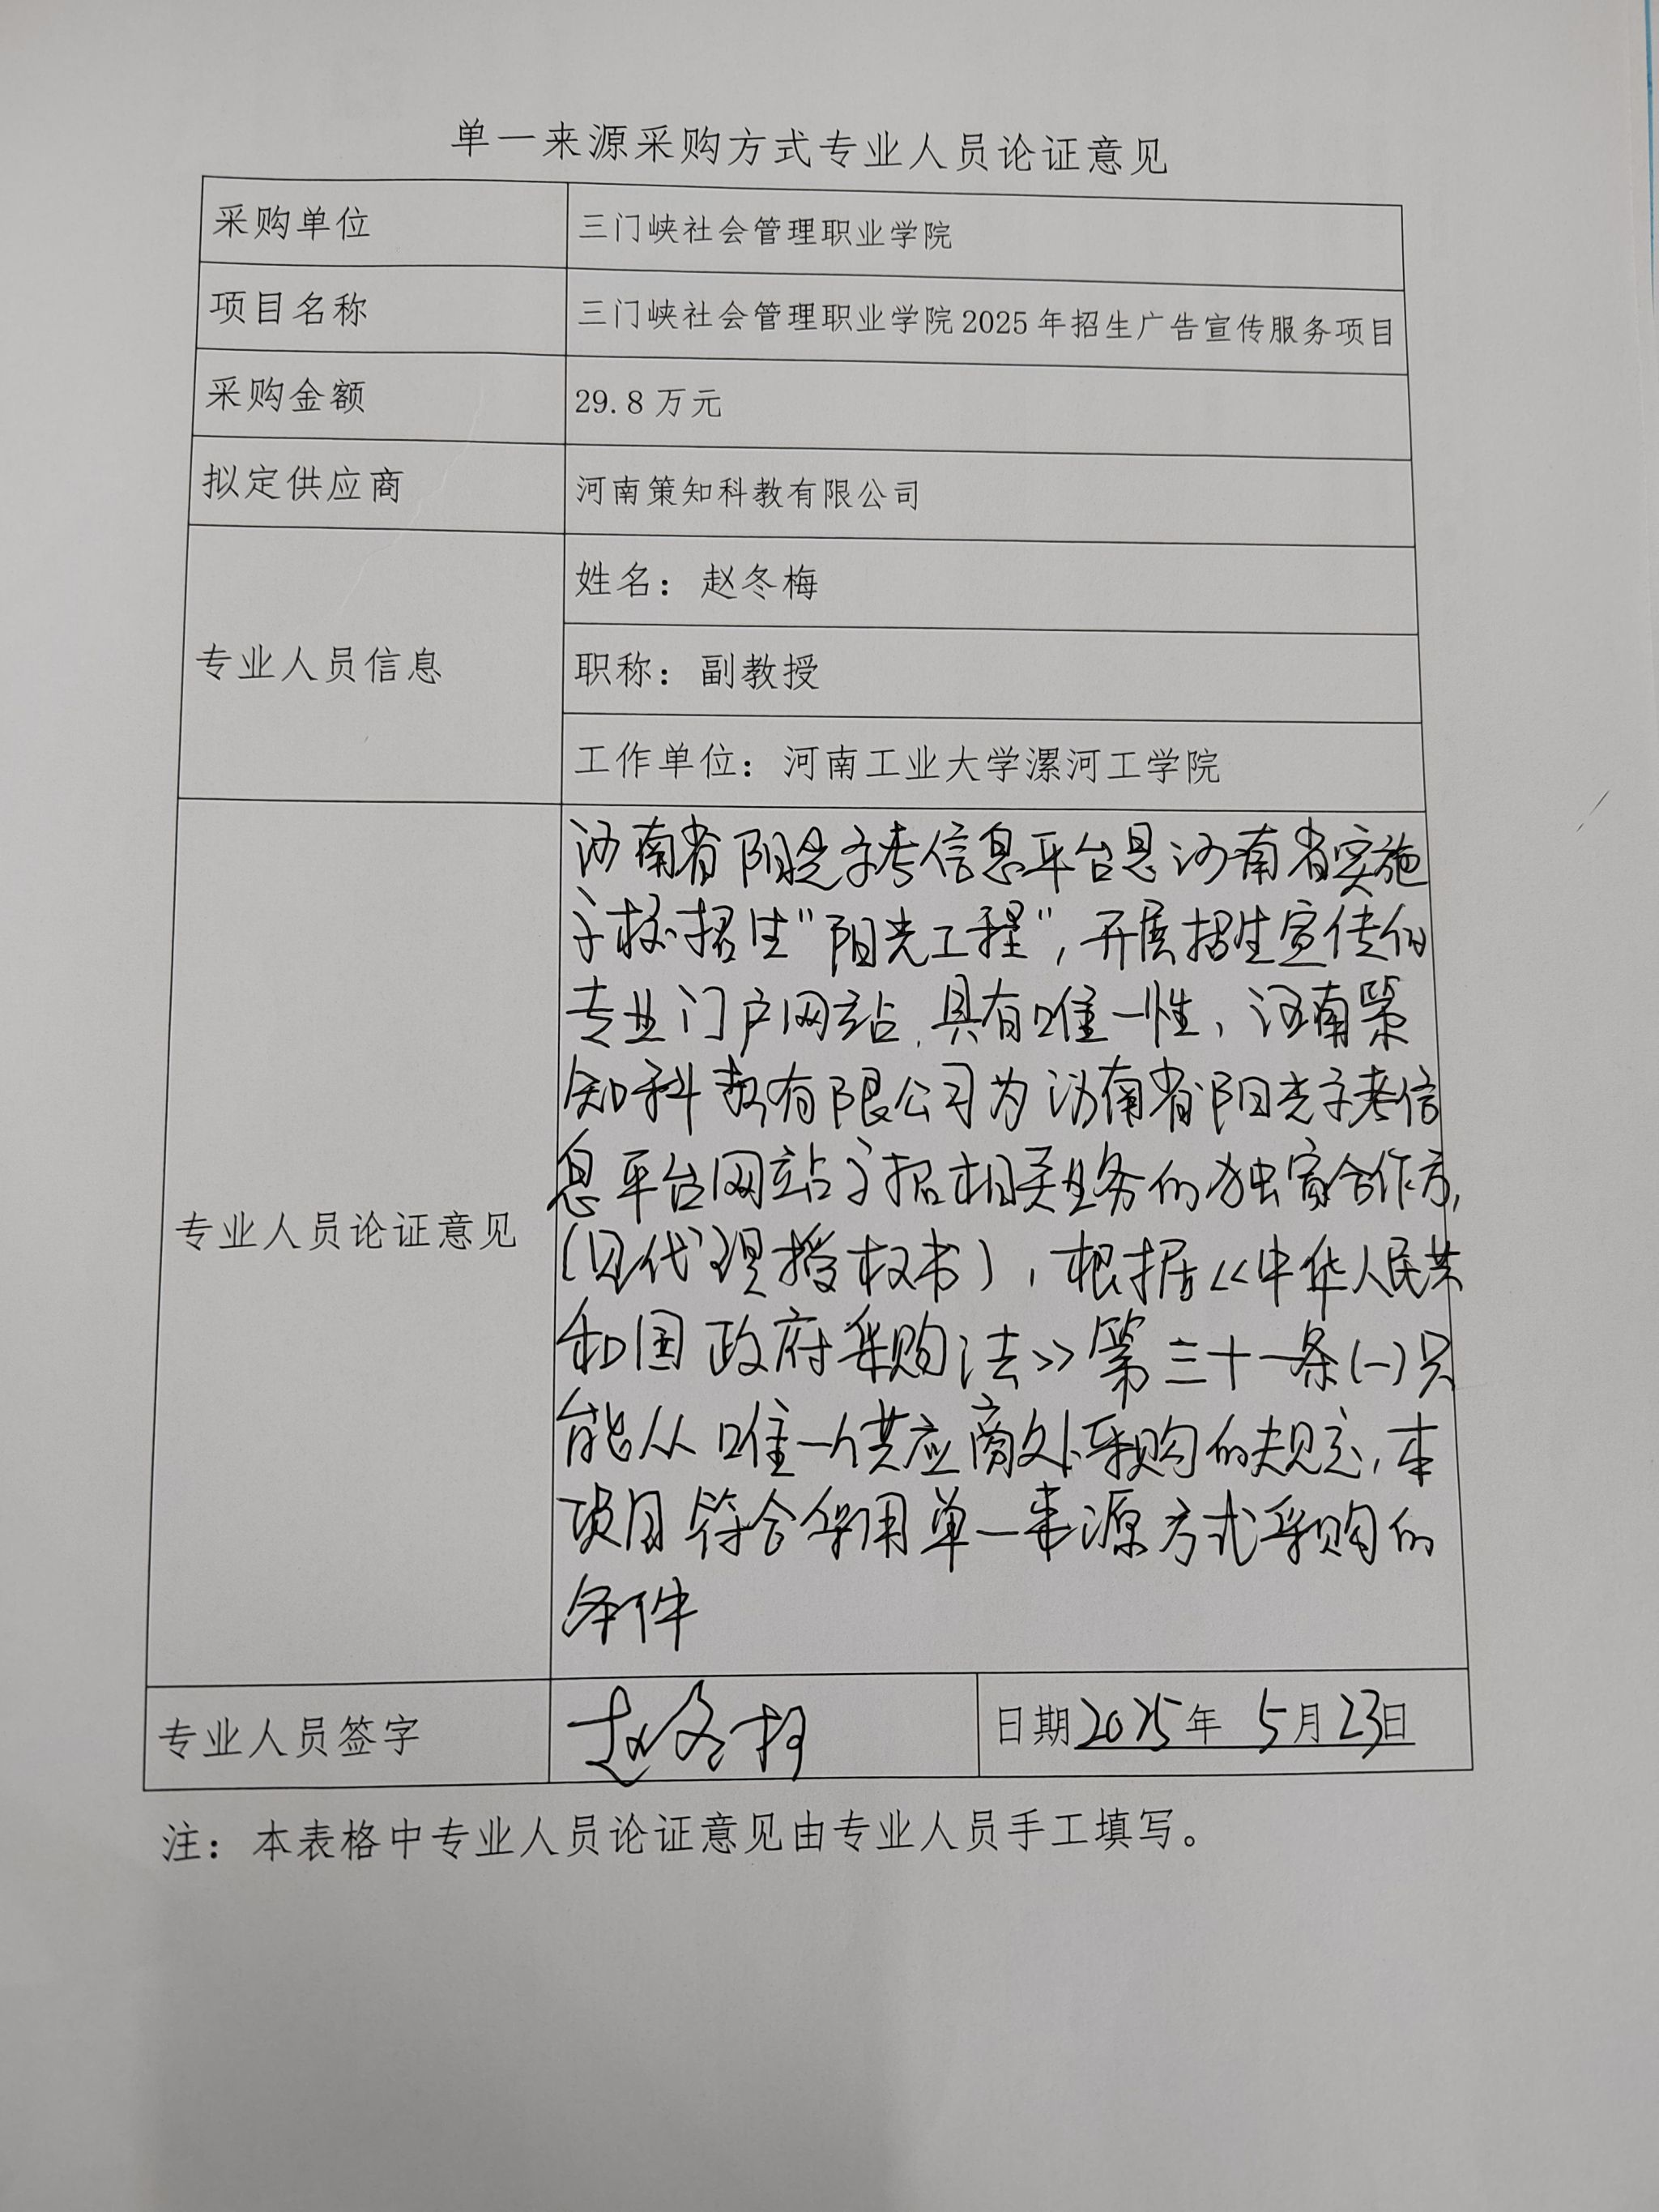 单一来源采购方式专业人员论证意见
采购单位
三门峡社会管理职业学院
项目名称
三门峡社会管理职业学院2025年招生广告宣传服务项目
采购金额
29.8万元
拟定供应商
河南策知科教有限公司
专业人员信息
姓名：赵冬梅
职称：副教授
工作单位：河南工业大学漯河工学院
专业人员论证意见
河南省阳光高考信息平台是河南省实施
高校招生"阳光工程"，开展招生宣传的
专业门户网站，具有唯一性，河南策
知科教有限公司为河南省阳光高考信
息平台网站高招相关业务的独家合作方，
（见代理授权书），根据《中华人民共
和国政府采购法》第三十一条(一)只
能从唯一供应商处采购的规定，本
项目符合采用单一来源方式采购的
条件
专业人员签字
赵冬梅
日期2025年 5月23日
注：本表格中专业人员论证意见由专业人员手工填写。